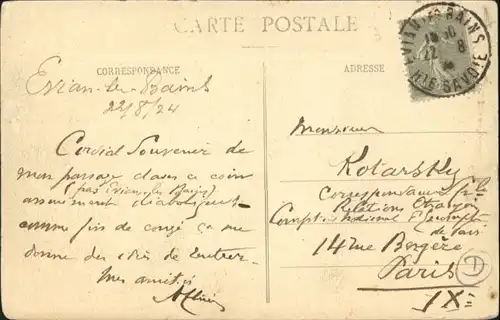 CARTE POSTALE
CORRESPONDANCE
Evian-les-Bains
22/8/24
Cordial Souvenir de
mon passage dans ce coin
(pas Evian-les-Bains)
assurément diabolique
comme fin de congé ça me
donne des idées de
Mes amitiés
ADRESSE
EVIAN-LES-BAINS
22 8
HTE SAVOIE
Monsieur
Kotarsky
Correspondance
Relations
Compt. National d'Escompte
de Paris
14 rue Bergère
Paris
IXe
D